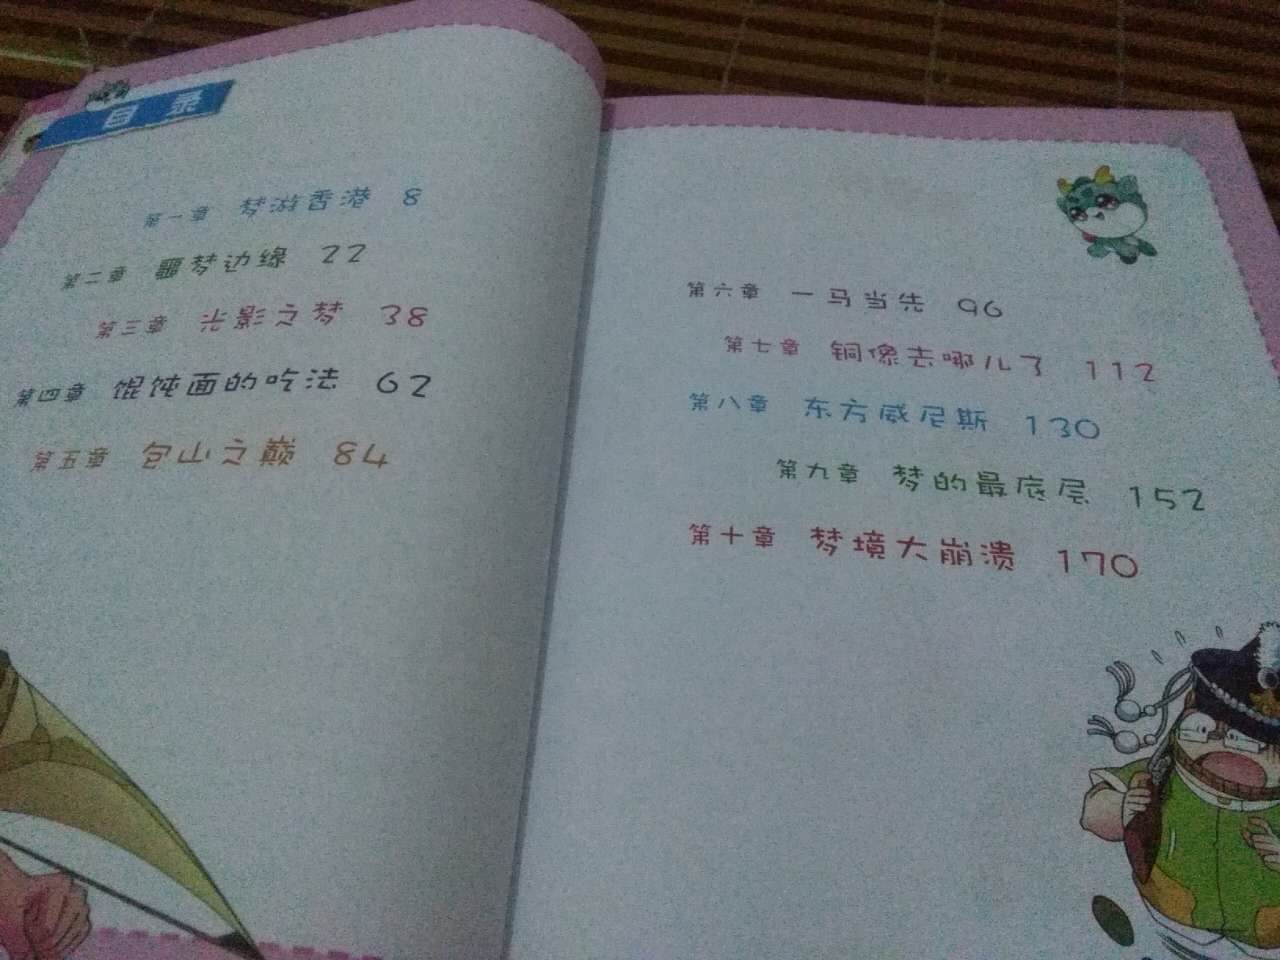 目录
第一章 梦游香港 8
第二章 噩梦边缘 22
第三章 光影之梦 38
第四章 馄饨面的吃法 62
第五章 包山之巅 84
第六章 一马当先 96
第七章 铜像去哪儿了 112
第八章 东方威尼斯 130
第九章 梦的最底层 152
第十章 梦境大崩溃 170